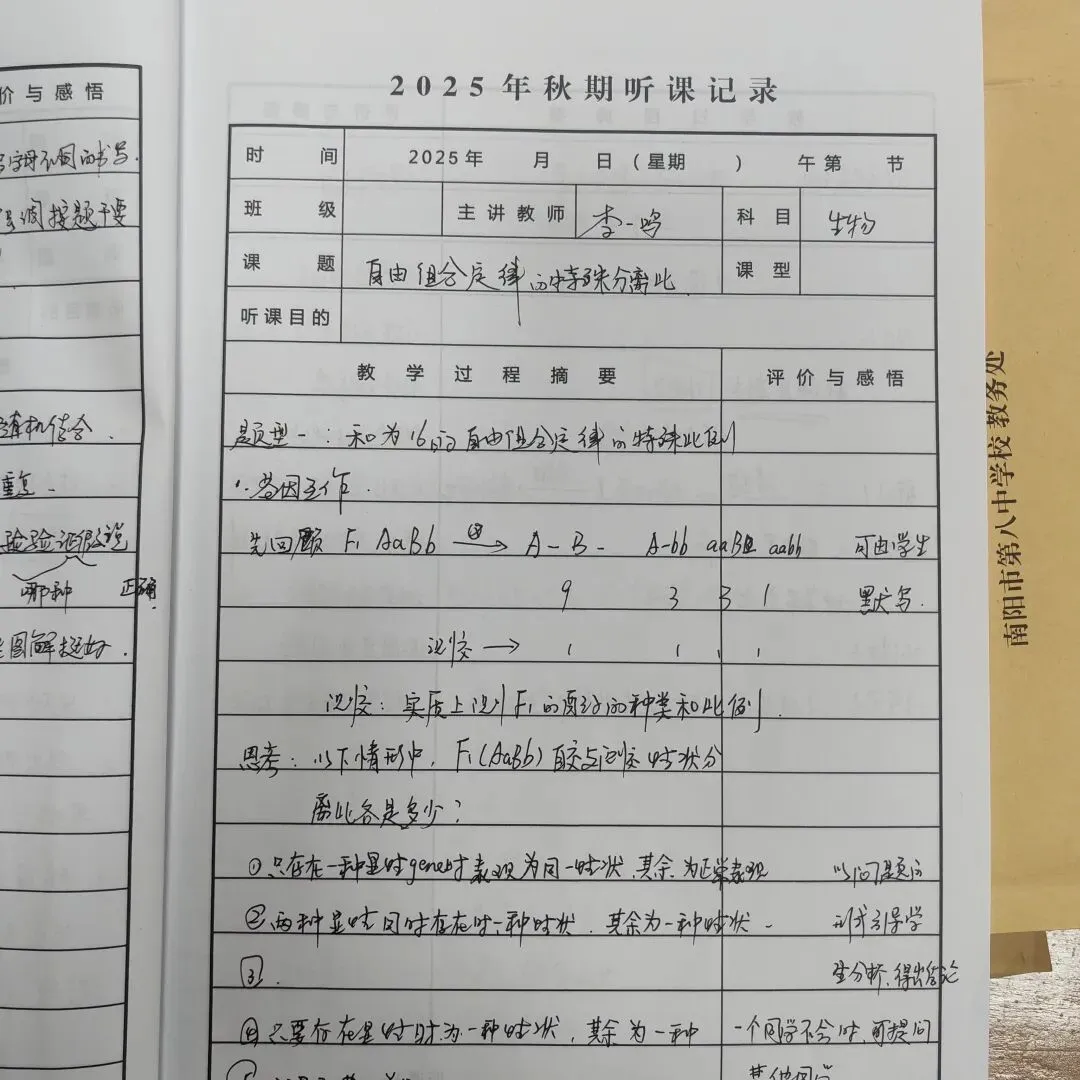 价与感悟
字母不同的书写.
强调按题干要
随机结合.
重复.
实验验证假说
哪种 正确
图解挺好.
2025年秋期听课记录
时 间 2025年 月 日(星期 ) 午第 节
班 级 主讲教师 李一鸣 科目 生物
课 题 自由组合定律的特殊分离比 课型
听课目的
教学过程摘要 评价与感悟
题型一:和为16的自由组合定律的特殊比例
1.基因互作.
先回顾 F₁ AaBb ⊗→ A-B- A-bb aaB- aabb 可由学生
9 3 3 1 默写.
测交 → 1 1 1 1
测交:实质上测F₁的配子的种类和比例.
思考:以下情形中,F₁(AaBb)自交与测交性状分
离比各是多少?
①只存在一种显性gene时表现为同一性状,其余为正常表现 以问题的
②两种显性同时存在时一种性状,其余为一种性状. 形式引导学
③. 生分析,得出结论
④只要存在显性时为一种性状,其余为一种 一个同学不会时,可提问
其他同学
南阳市第八中学校教务处